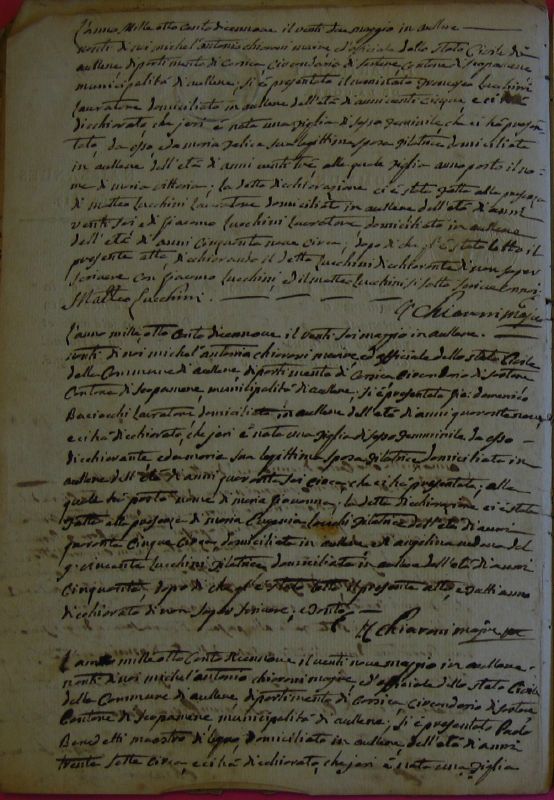 L'anno mille otto cento diecenove il venti due maggio in aullene
nonti di noi michel'antonio chiaroni maire ed officiale dello stato Civile di
aullene dipartimento di Corsica Circondario di Sartene Cantone di Scopamene
municipalità di aullene, si è presentato il nominato Francesco Lucchini
lavratore domiciliato in aullene dell'età di anni venti cinque e ci hà
dicchiarato, che jeri è nata una figlia di sesso feminile, che ci hà presen
tato, da esso, e da maria Felice sua legittima sposa filatrice domiciliata
in aullene dell'età di anni venti tre alla quale figlia anno posto il no
me di maria vittoria; la detta dicchiarazione ci è stata fatta alla presenza
di matteo Lucchini Lavratore domiciliato in aullene dell'età di anni
venti sei e di Giacomo Lucchini Lavratore domiciliato in aullene
dell'età di anni Cinquanta nove Circa, dopo di che gl'è stato letto il
presente atto, dicchiarando il detto Lucchini dicchiarante di non saper
scrivere con Giacomo Lucchini, ed il matteo Lucchini si è sotto scritto con noi
Matteo Lucchini.
Chiaroni maire
L'anno mille otto Cento diecenove il venti sei maggio in aullene.
nonti di noi michel'antonio chiaroni maire ed officiale dello stato Civile
della Commune di aullene dipartimento di Corsica Circondario di Sartene
Cantone di Scopamene, municipalità di aullene, si è presentato Gio: domenico
Baciocchi Lavratore domiciliato in aullene dell'età di anni quaranta nove
e ci hà dicchiarato, che jeri è nata una figlia di sesso femminile da esso
dicchiarante e da maria sua legittima sposa filatrice domiciliata in
aullene dell'età di anni quaranta sei circa, che ci hà presentata; alla
quale hà posto nome di maria Giovanna; la detta dicchiarazione ci è stata
fatta alla presenza di maria Eugenia Lucchi filatrice dell'età di anni
quaranta Cinque Circa, domiciliata in aullene e di angelina vedova del
q: Lucchini filatrice, domiciliata in aullene dell'età di anni
Cinquanta, dopo di che gl'è stato letto il presente atto, e anno
dicchiarato di non saper scrivere,
Chiaroni maire
L'anno mille otto Cento diecenove il venti nove maggio in aullene.
nonti di noi michel'antonio chiaroni maire, ed officiale dello stato Civile
della Commune di aullene dipartimento di Corsica Circondario di Sartene
Cantone di Scopamene municipalità di aullene; si è presentato Paolo
Benedetti maestro di legno, domiciliato in aullene, dell'età di anni
trenta sette Circa, e ci hà dicchiarato, che jeri è nata una figlia